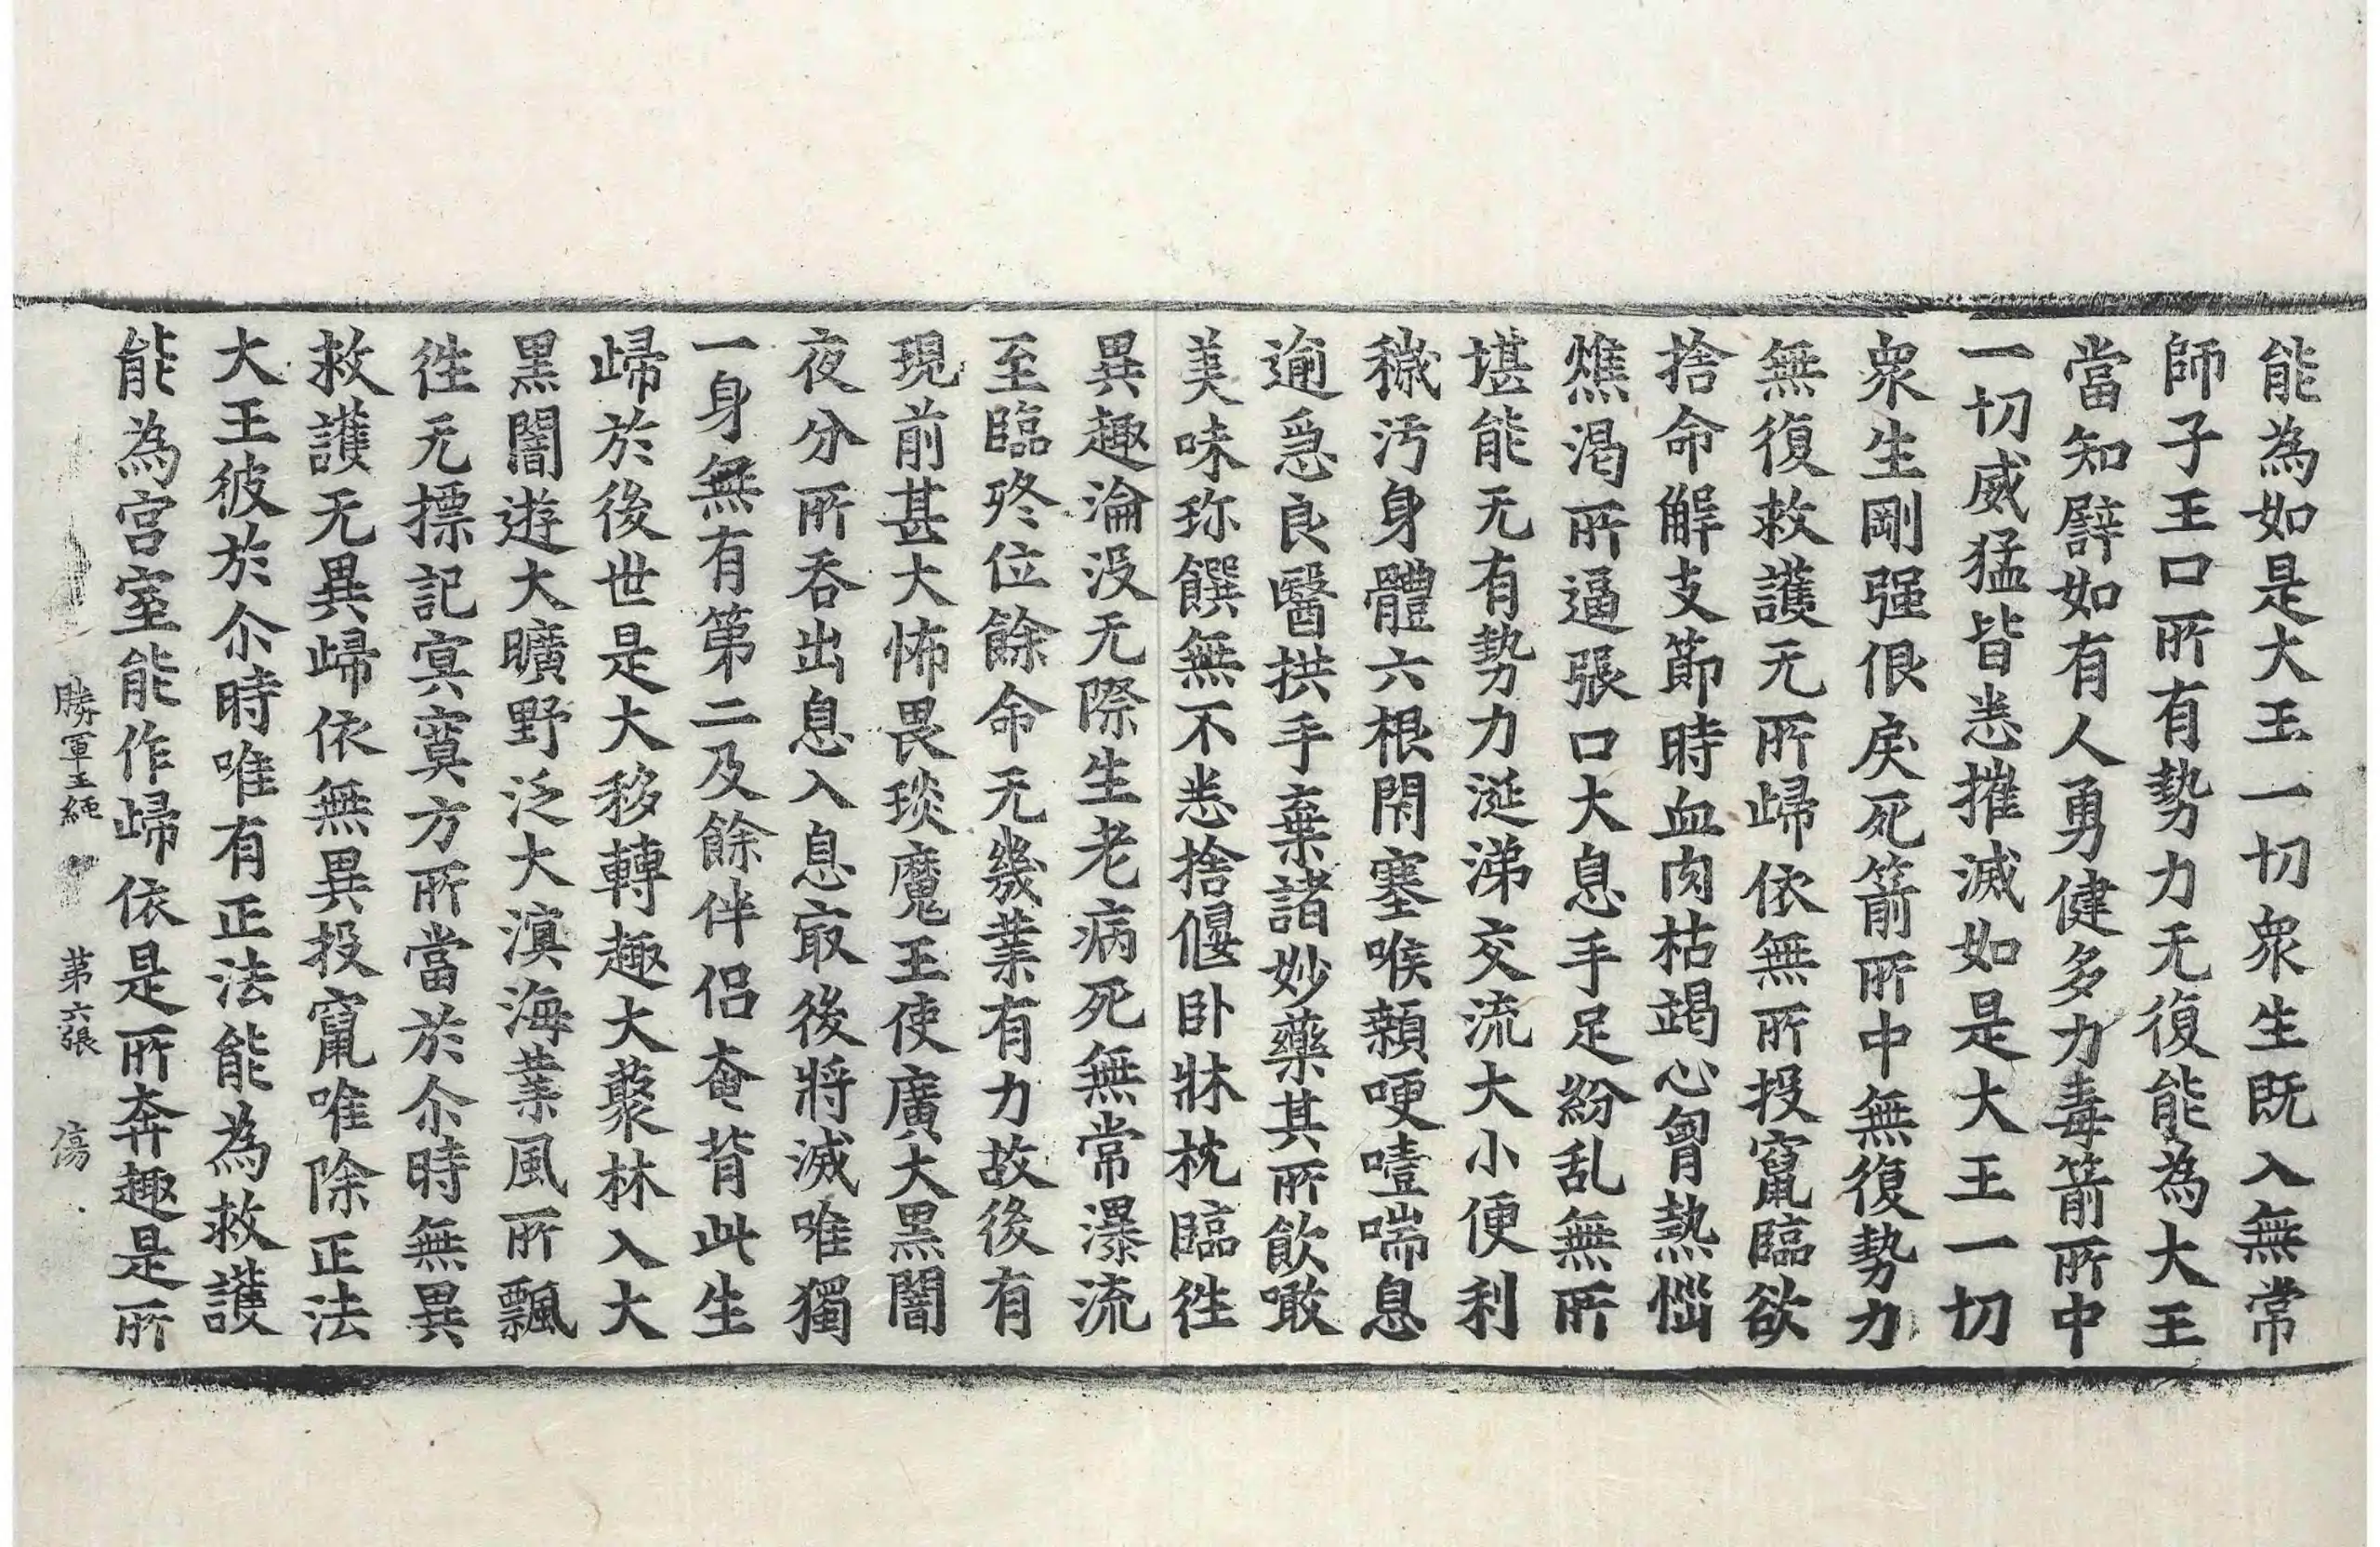 能為如是大王一切衆生既入無常
師子王口所有勢力无復能為大王
當知譬如有人勇健多力毒箭所中
一切威猛皆悉摧滅如是大王一切
衆生剛强佷戾死箭所中無復勢力
無復救護无所歸依無所投竄臨欲
捨命解支節時血肉枯竭心胷熱惱
燋渴所逼張口大息手足紛乱無所
堪能无有勢力涎涕交流大小便利
穢汚身體六根閇塞喉顙哽噎喘息
逾急良醫拱手棄諸妙藥其所飲噉
美味珎饌無不悉捨偃卧牀枕臨徃
異趣淪没无際生老病死無常瀑流
至臨終位餘命无幾業有力故後有
現前甚大怖畏琰魔王使廣大黒闇
夜分所吞出息入息㝡後將滅唯獨
一身無有第二及餘伴侣奄背此生
歸於後世是大移轉趣大藂林入大
黒闇遊大曠野泛大溟海業風所飄
徃无摽記㝠寞方所當於尒時無異
救護无異歸依無異投竄唯除正法
大王彼於尒時唯有正法能為救護
能為宫室能作歸依是所奔趣是所
勝軍王經 第六張 傷